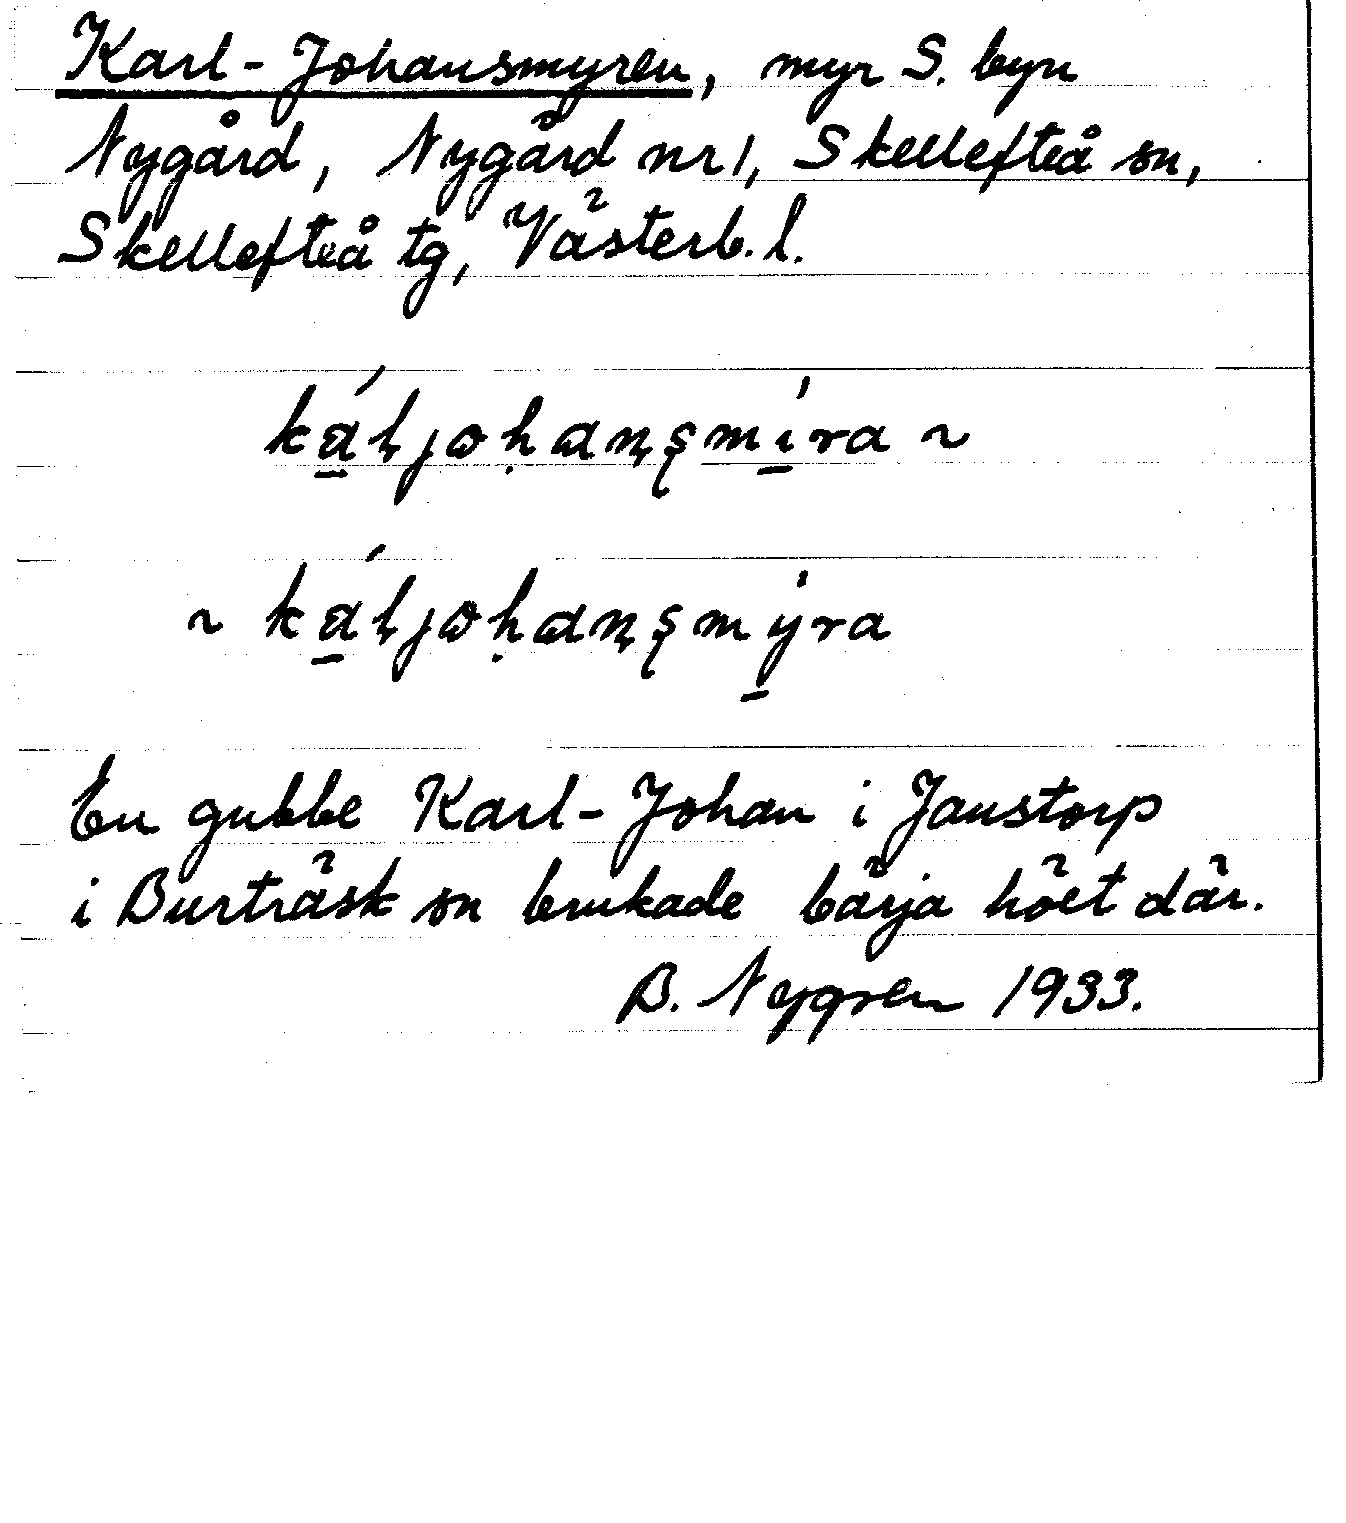 Karl-Johansmyren, myr S. byn
Nygård, Nygård nr 1, Skellefteå sn,
Skellefteå tg, Västerb. l.
ká̱ļjoḥaņşmí̱ra ~
~ ká̱ļjoḥaņşmý̱ra
En gubbe Karl-Johan i Janstorp
i Burträsk sn brukade bärja höet där.
B. Nygren 1933.